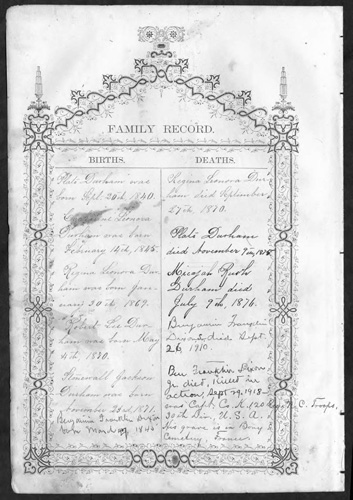 FAMILY RECORD.
BIRTHS.
Plato Durham was
born Sept. 20th 1840.
Leonora
Durham was born
February 14th, 1845.
Regina Leonora Dur-
ham was born Jan-
uary 30th 1869.
Robert Lee Dur-
ham was born May
4th, 1870.
Stonewall Jackson
Durham was born
November 23d 1871.
Benjamin Franklin
born March 1844
DEATHS.
Regina Leonora Dur-
ham died September
27th, 1870.
Plato Durham
died November 9th, 1875
Micajah Rush
Durham died
July 9th, 1876.
Benjamin Franklin
Dixon, died Sept.
26, 1910.
Ben Franklin Dixon
Jr. died, Killed in
action, Sept 29, 1918
was Capt, Co. K. 120 Reg. N. C. Troops,
30th Div, U. S. A.
His grave is in Bony
Cemetery, France